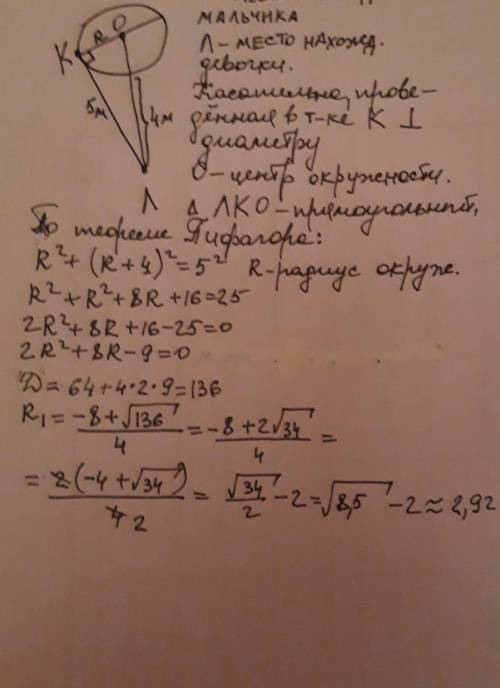 мальчика
Л - место нахожд.
девочки.
Касательная, прове-
дённая в т-ке К ⊥
диаметру
О - центр окружности.
Δ ЛКО - прямоугольный,
К
R
О
5м
4м
Л
По теореме Пифагора:
R² + (R + 4)² = 5² R - радиус окруж.
R² + R² + 8R + 16 = 25
2R² + 8R + 16 - 25 = 0
2R² + 8R - 9 = 0
D = 64 + 4·2·9 = 136
R₁ = (-8 + √136)/4 = (-8 + 2√34)/4 =
= 2(-4 + √34)/4 2 = √34/2 - 2 = √8,5 - 2 ≈ 2,92